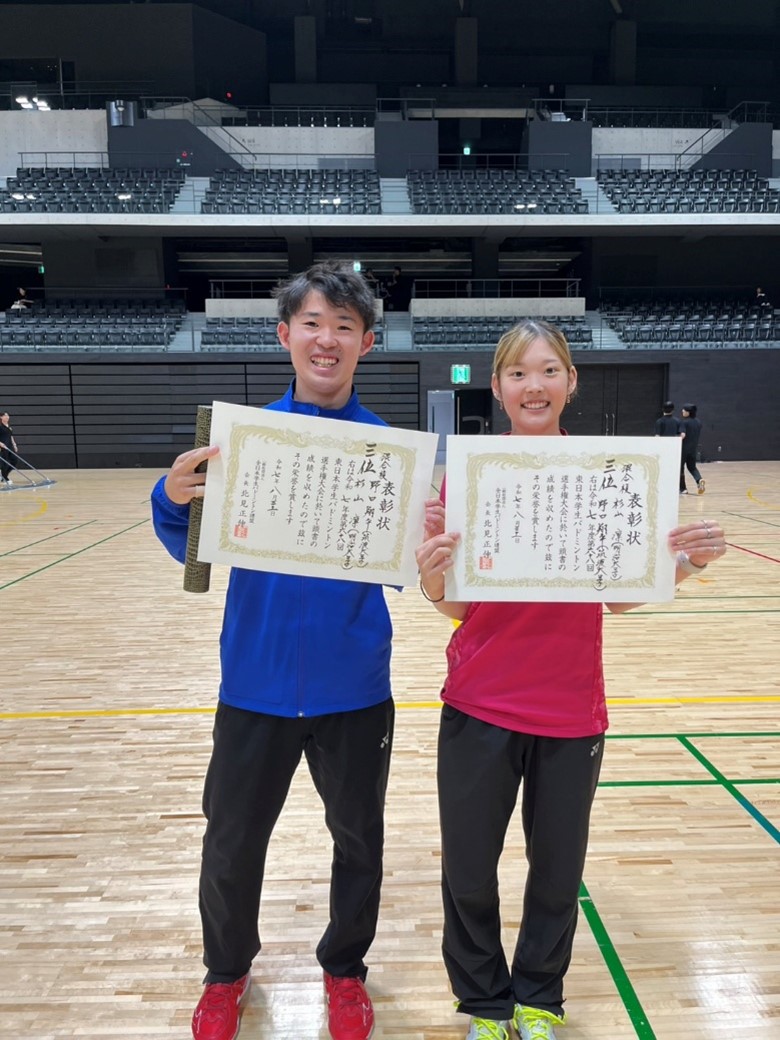 表彰状
混合複
三位
杉山
野口
右は令和七年度第六十八回
東日本学生バドミントン
選手権大会に於いて頭書の
成績を収めたので茲に
その栄誉を賞します
令和七年八月
全日本学生バドミントン連盟
会長 北見正伸
表彰状
混合複
三位
杉山
野口
右は令和七年度第六十八回
東日本学生バドミントン
選手権大会に於いて頭書の
成績を収めたので茲に
その栄誉を賞します
令和七年八月
全日本学生バドミントン連盟
会長 北見正伸